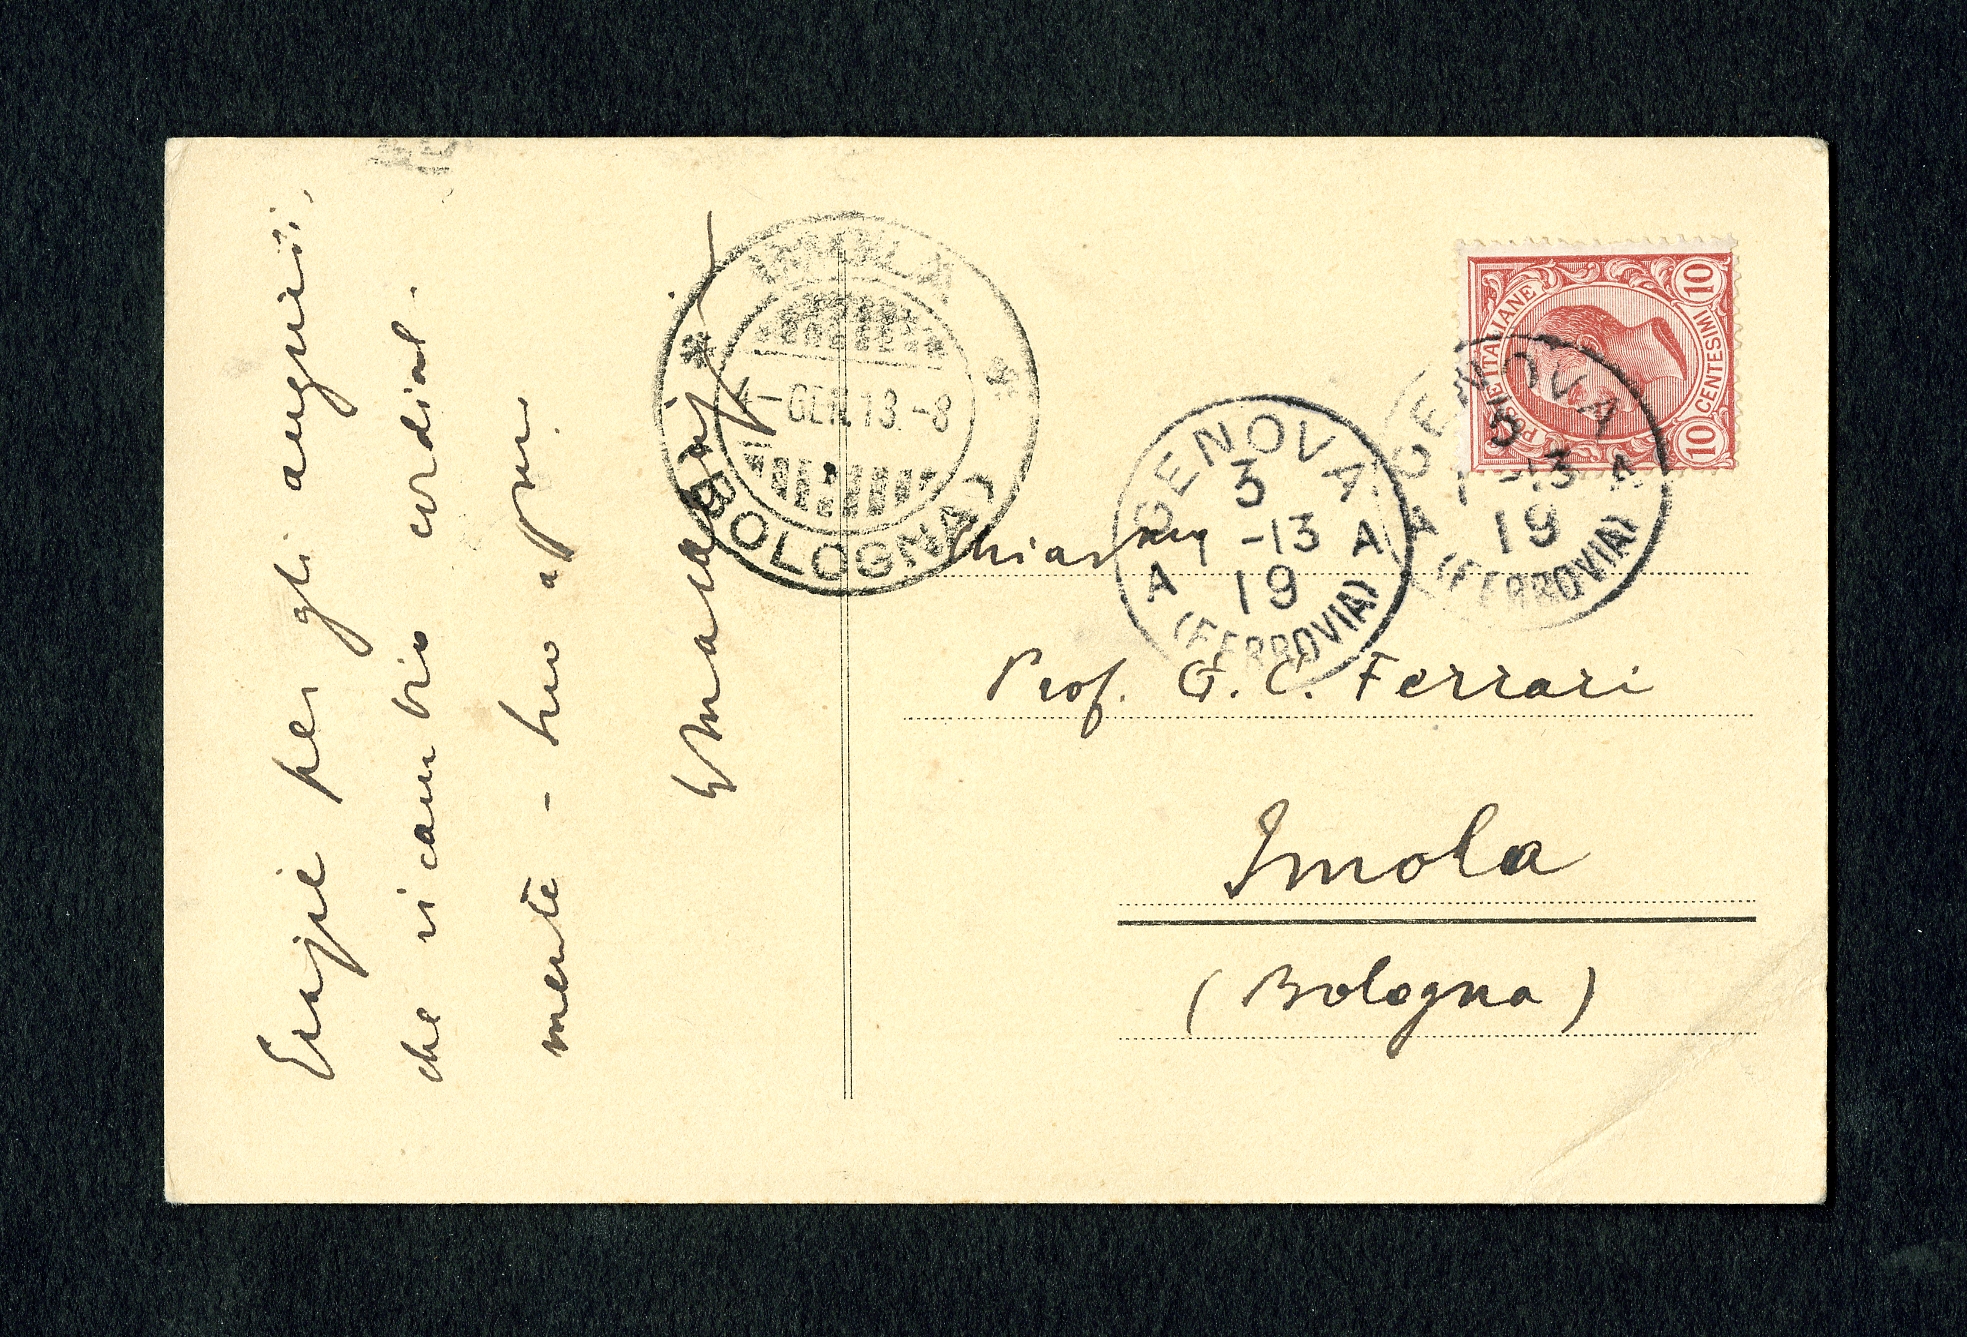 Grazie per gli auguri,
che ricambio cordial-
mente - Suo aff.mo
IMOLA
4-GEN.13.-8
(BOLOGNA)
GENOVA
3
1 -13
A A
19
(FERROVIA)
GENOVA
3
1 -13
A
A
19
(FERROVIA)
POSTE ITALIANE
10 CENTESIMI 10
Chiar.mo
Prof. G. C. Ferrari
Imola
(Bologna)